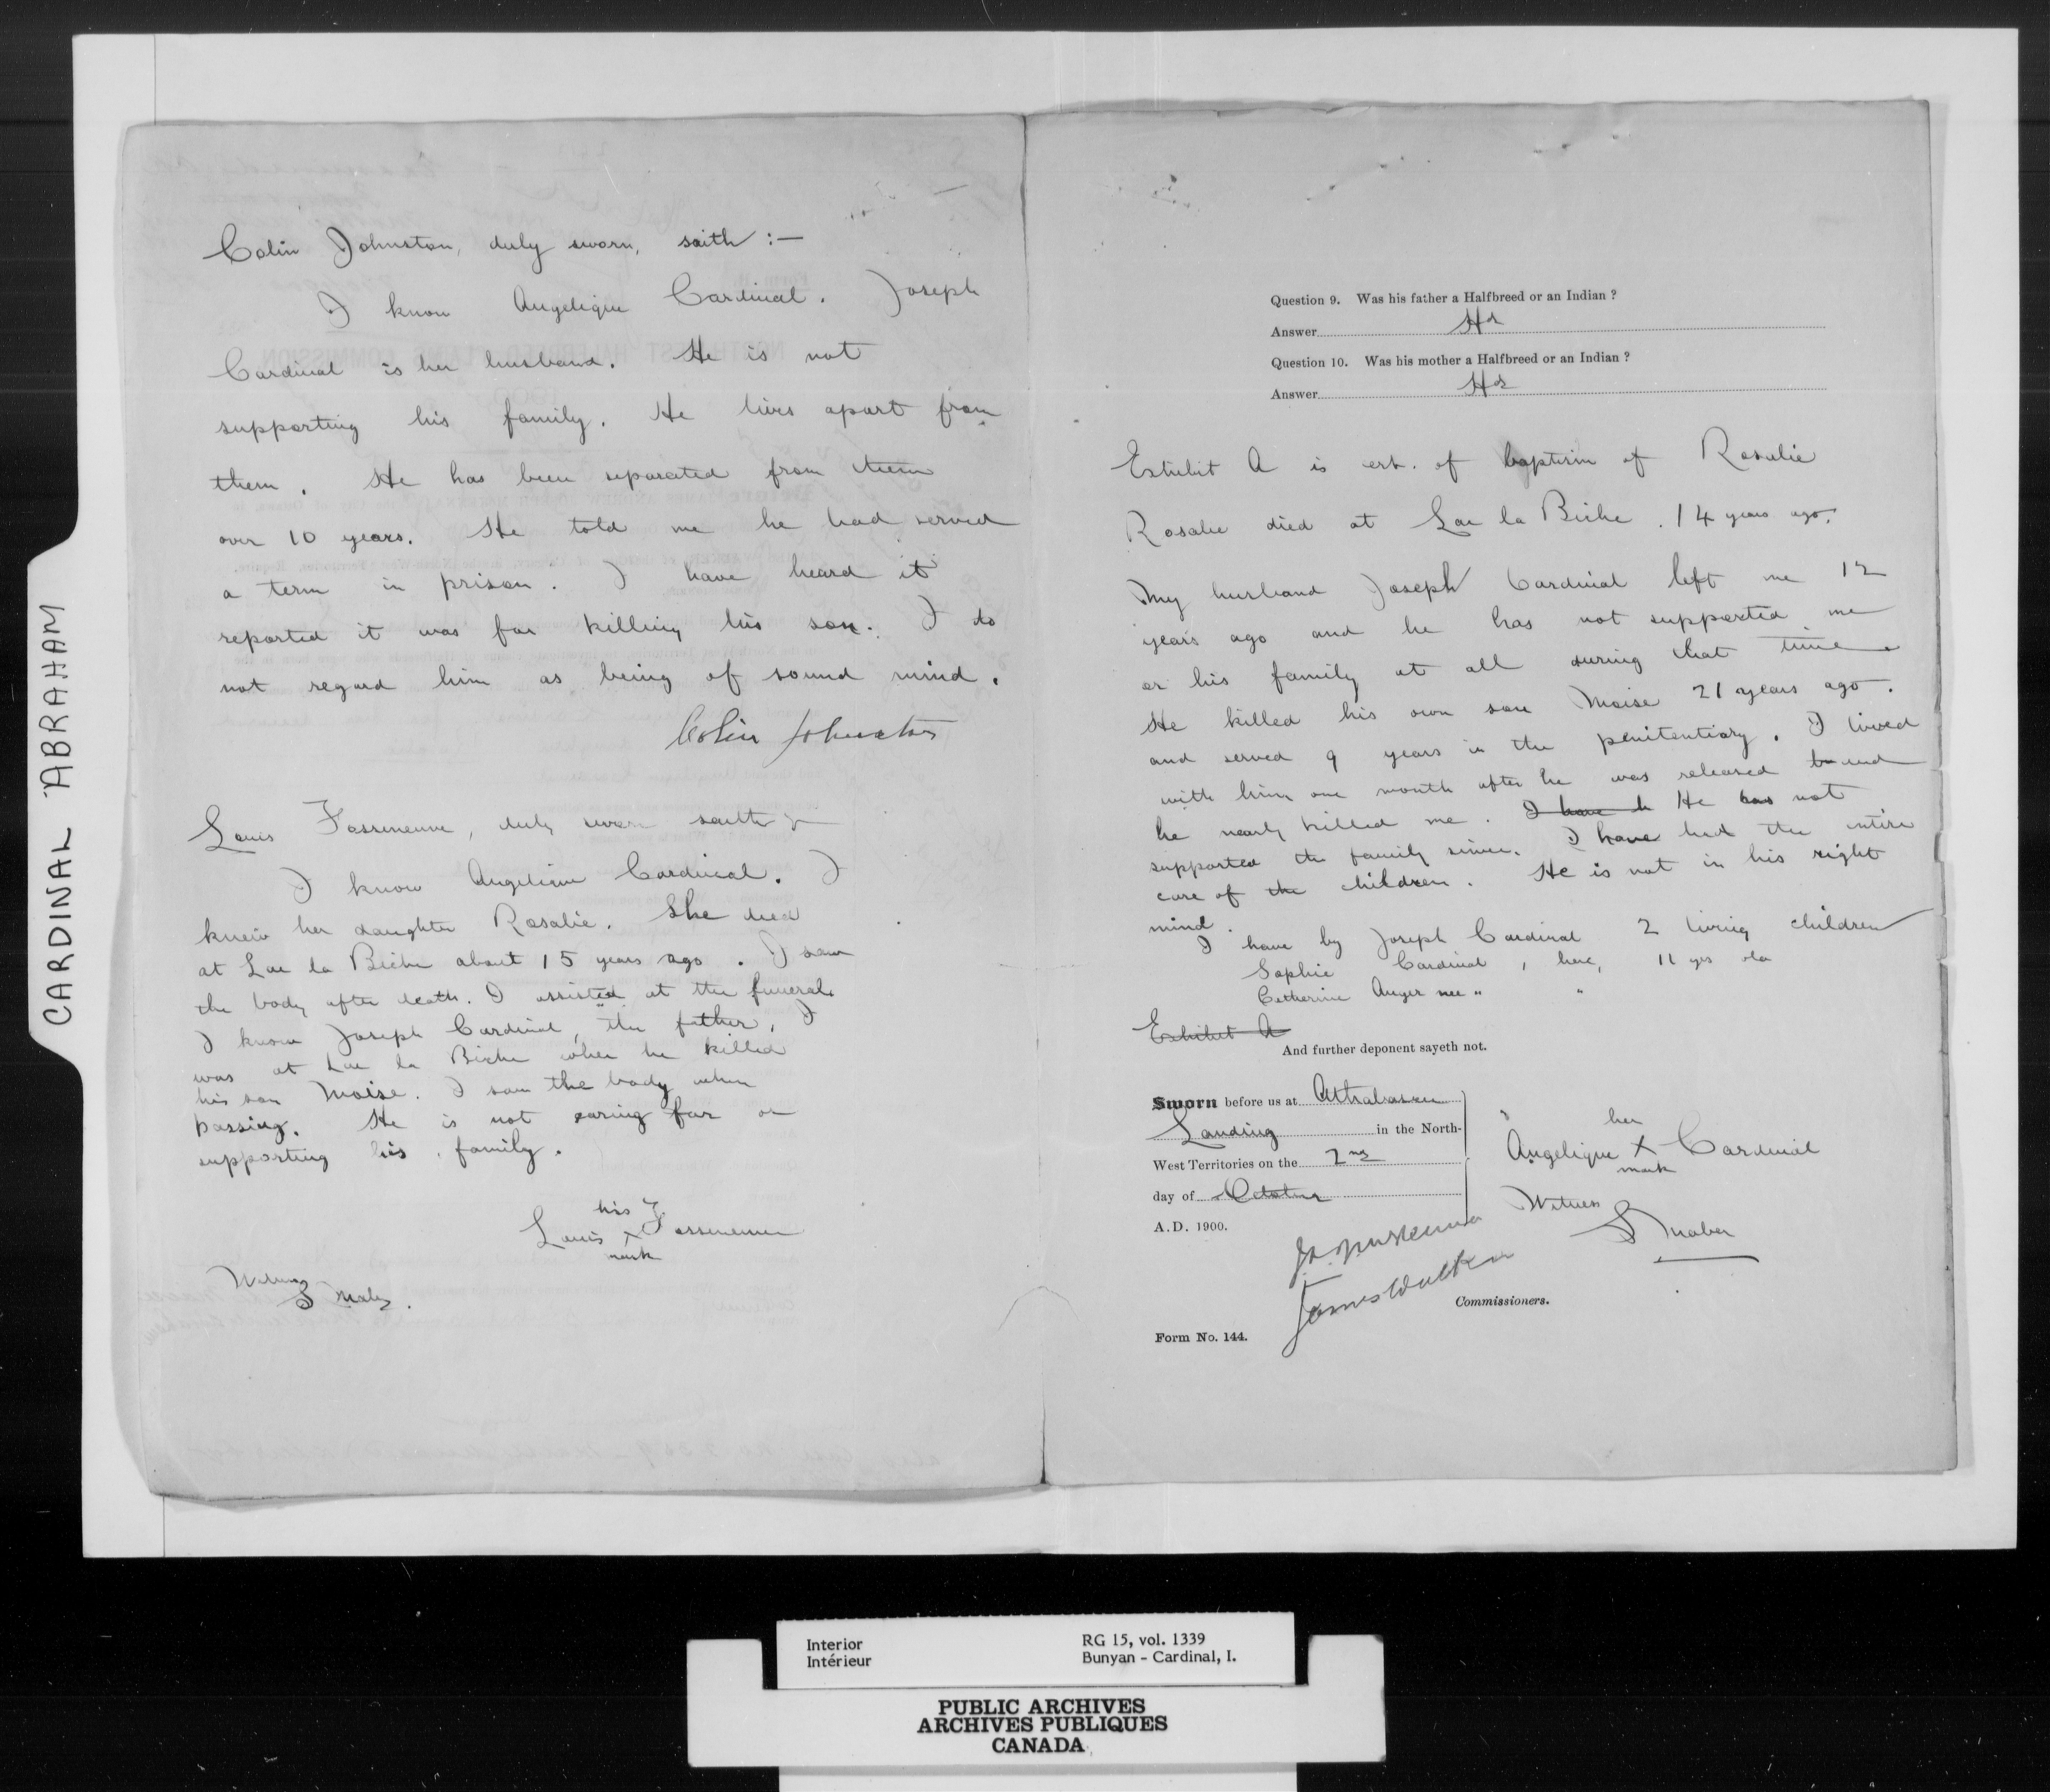 CARDINAL ABRAHAM
Colin Johnston, duly sworn, saith :—
I know Angelique Cardinal. Joseph
Cardinal is her husband. He is not
supporting his family. He lives apart from
them. He has been separated from them
over 10 years. He told me he had served
a term in prison. I have heard it
reported it was for killing his son. I do
not regard him as being of sound mind.
Colin Johnston
Louis Fosseneuve, duly sworn saith
I know Angelique Cardinal. I
knew her daughter Rosalie. She died
at Lac la Biche about 15 years ago. I saw
the body after death. I assisted at the funeral.
I know Joseph Cardinal, the father. I
was at Lac la Biche when he killed
his son Moise. I saw the body when
passing. He is not caring for or
supporting his family.
his
Louis X Fosseneuve
mark
Witness
Question 9. Was his father a Halfbreed or an Indian ?
Answer Hd
Question 10. Was his mother a Halfbreed or an Indian ?
Answer Hd
Exhibit A is cert. of baptism of Rosalie
Rosalie died at Lac la Biche. 14 years ago.
My husband Joseph Cardinal left me 12
years ago and he has not supported me
or his family at all during that time.
He killed his own son Moise 21 years ago.
and served 9 years in the penitentiary. I lived
with him one month after he was released and
he nearly killed me. I have h He has not
supported the family since. I have had the entire
care of the children. He is not in his right
mind.
I have by Joseph Cardinal 2 living children
Sophie Cardinal, here, 11 yrs old
Catherine Auger nee " "
Exhibit A
And further deponent sayeth not.
Sworn before us at Athabasca
Landing in the North-
West Territories on the 2nd
day of October
A.D. 1900.
her
Angelique X Cardinal
mark
Witness
James Walker
Commissioners.
Form No. 144.
Interior
Intérieur
RG 15, vol. 1339
Bunyan - Cardinal, I.
PUBLIC ARCHIVES
ARCHIVES PUBLIQUES
CANADA